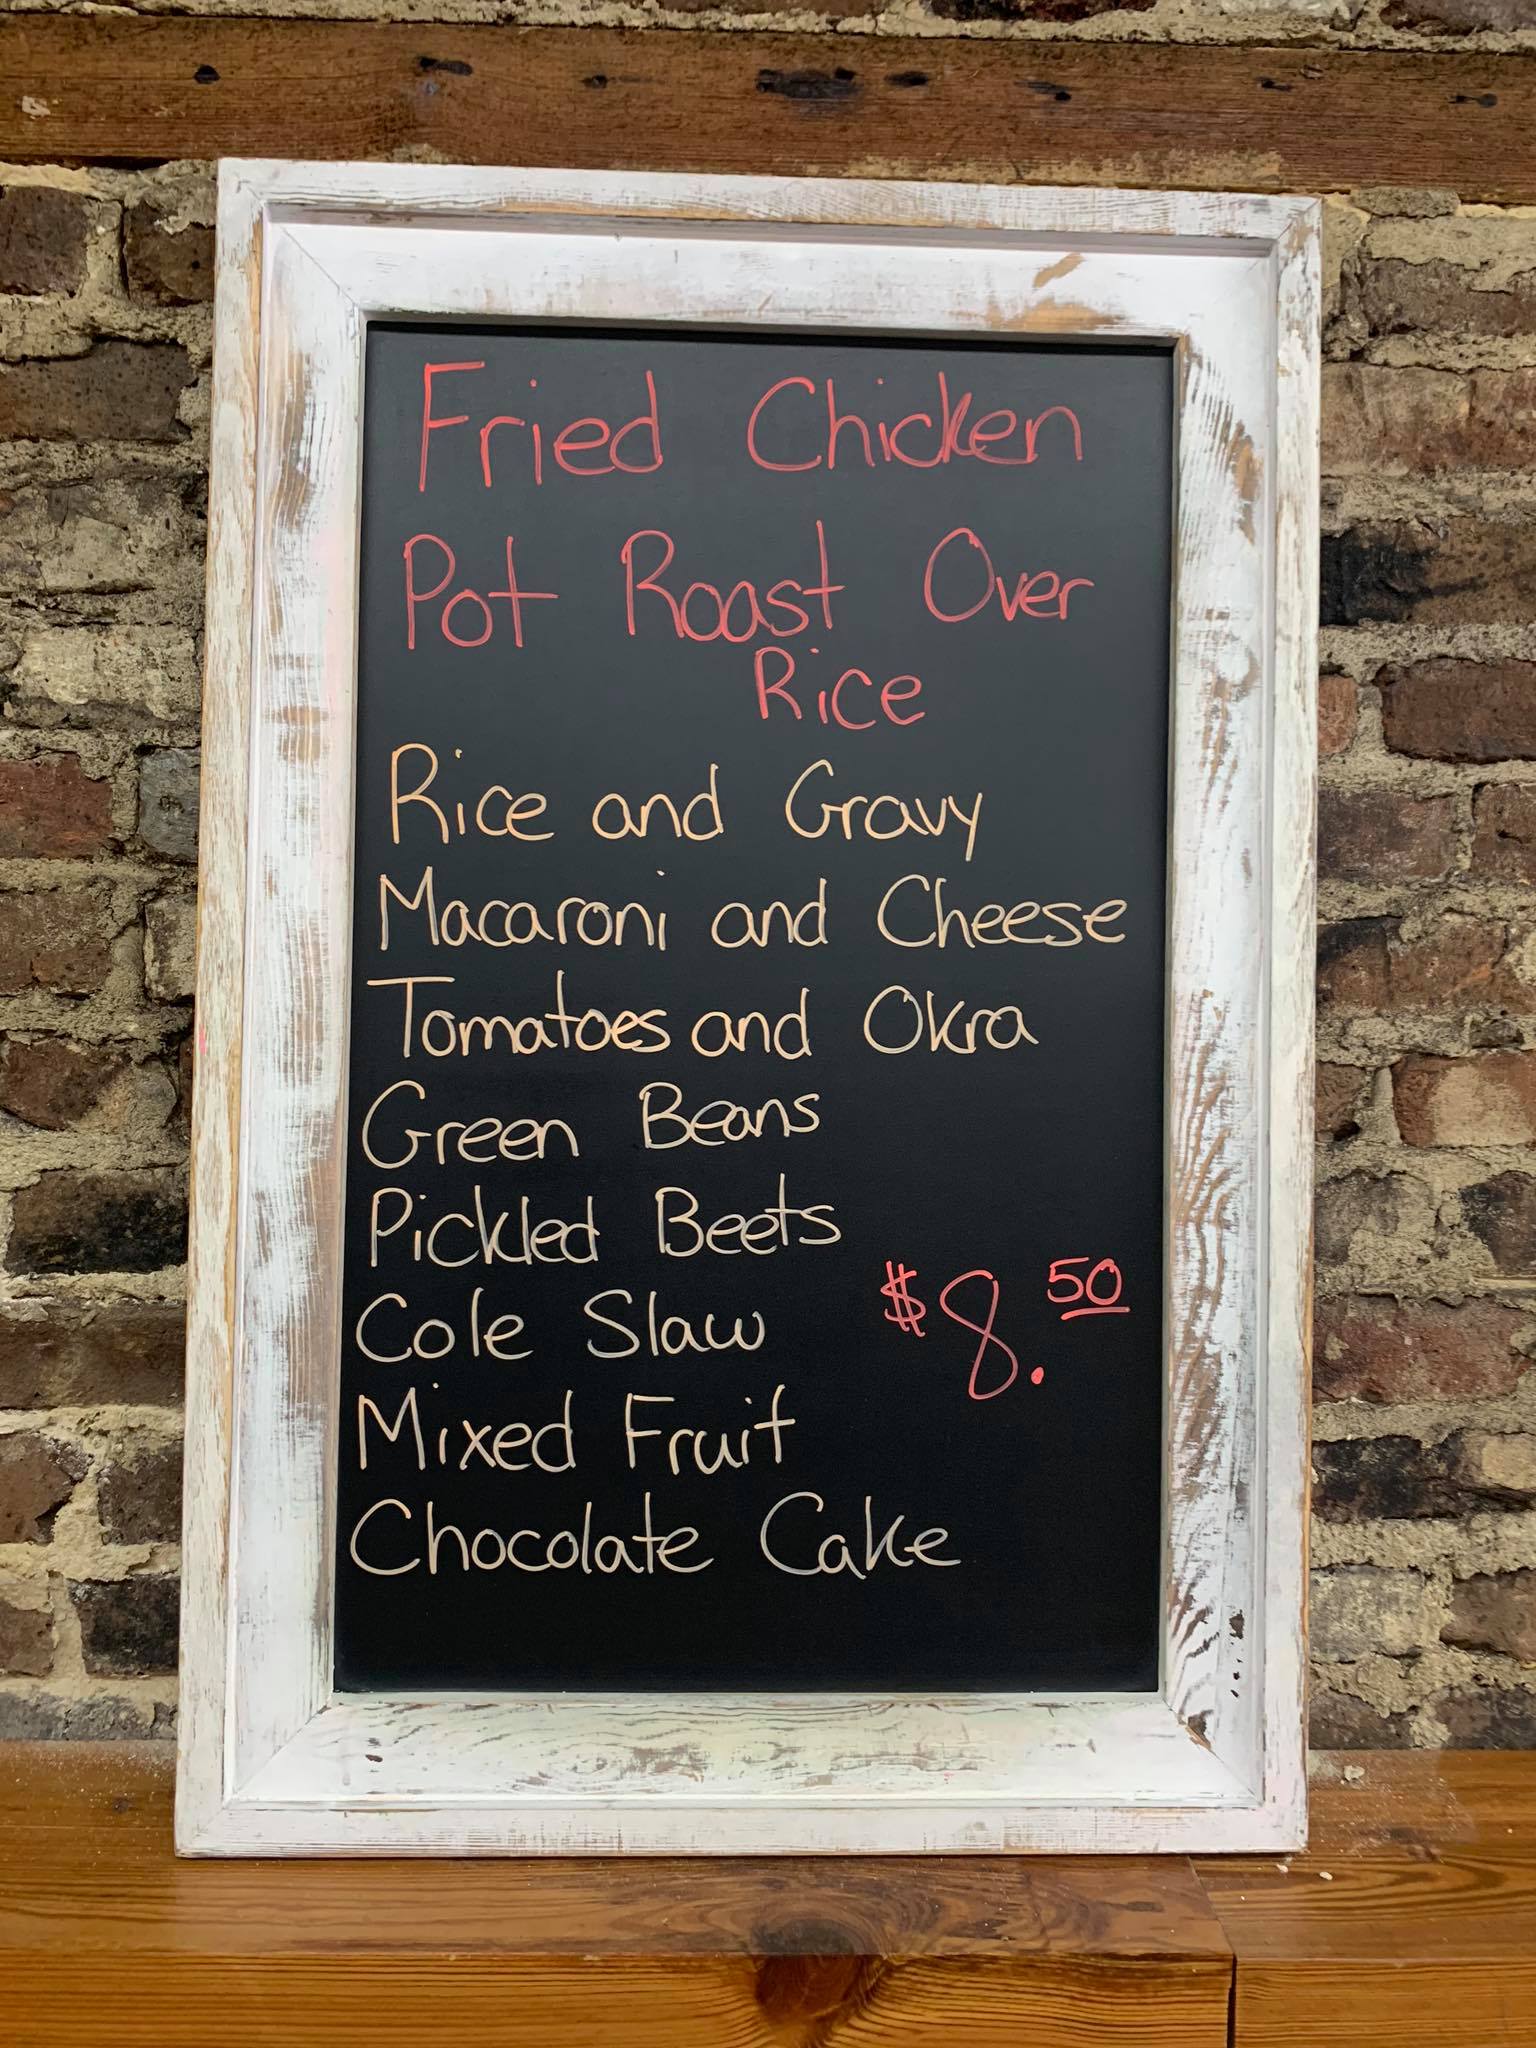 Fried Chicken
Pot Roast Over
Rice
Rice and Gravy
Macaroni and Cheese
Tomatoes and Okra
Green Beans
Pickled Beets
Cole Slaw
$8.50
Mixed Fruit
Chocolate Cake